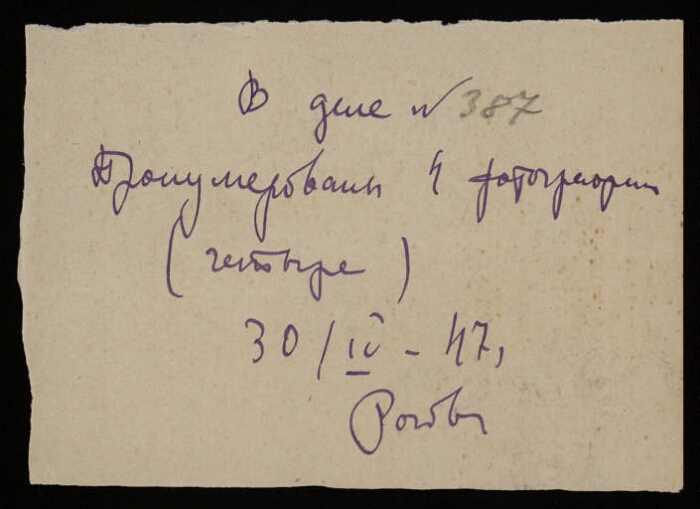 В деле № 387
Пронумерованы 4 фотографии
(четыре)
30/IV - 47,